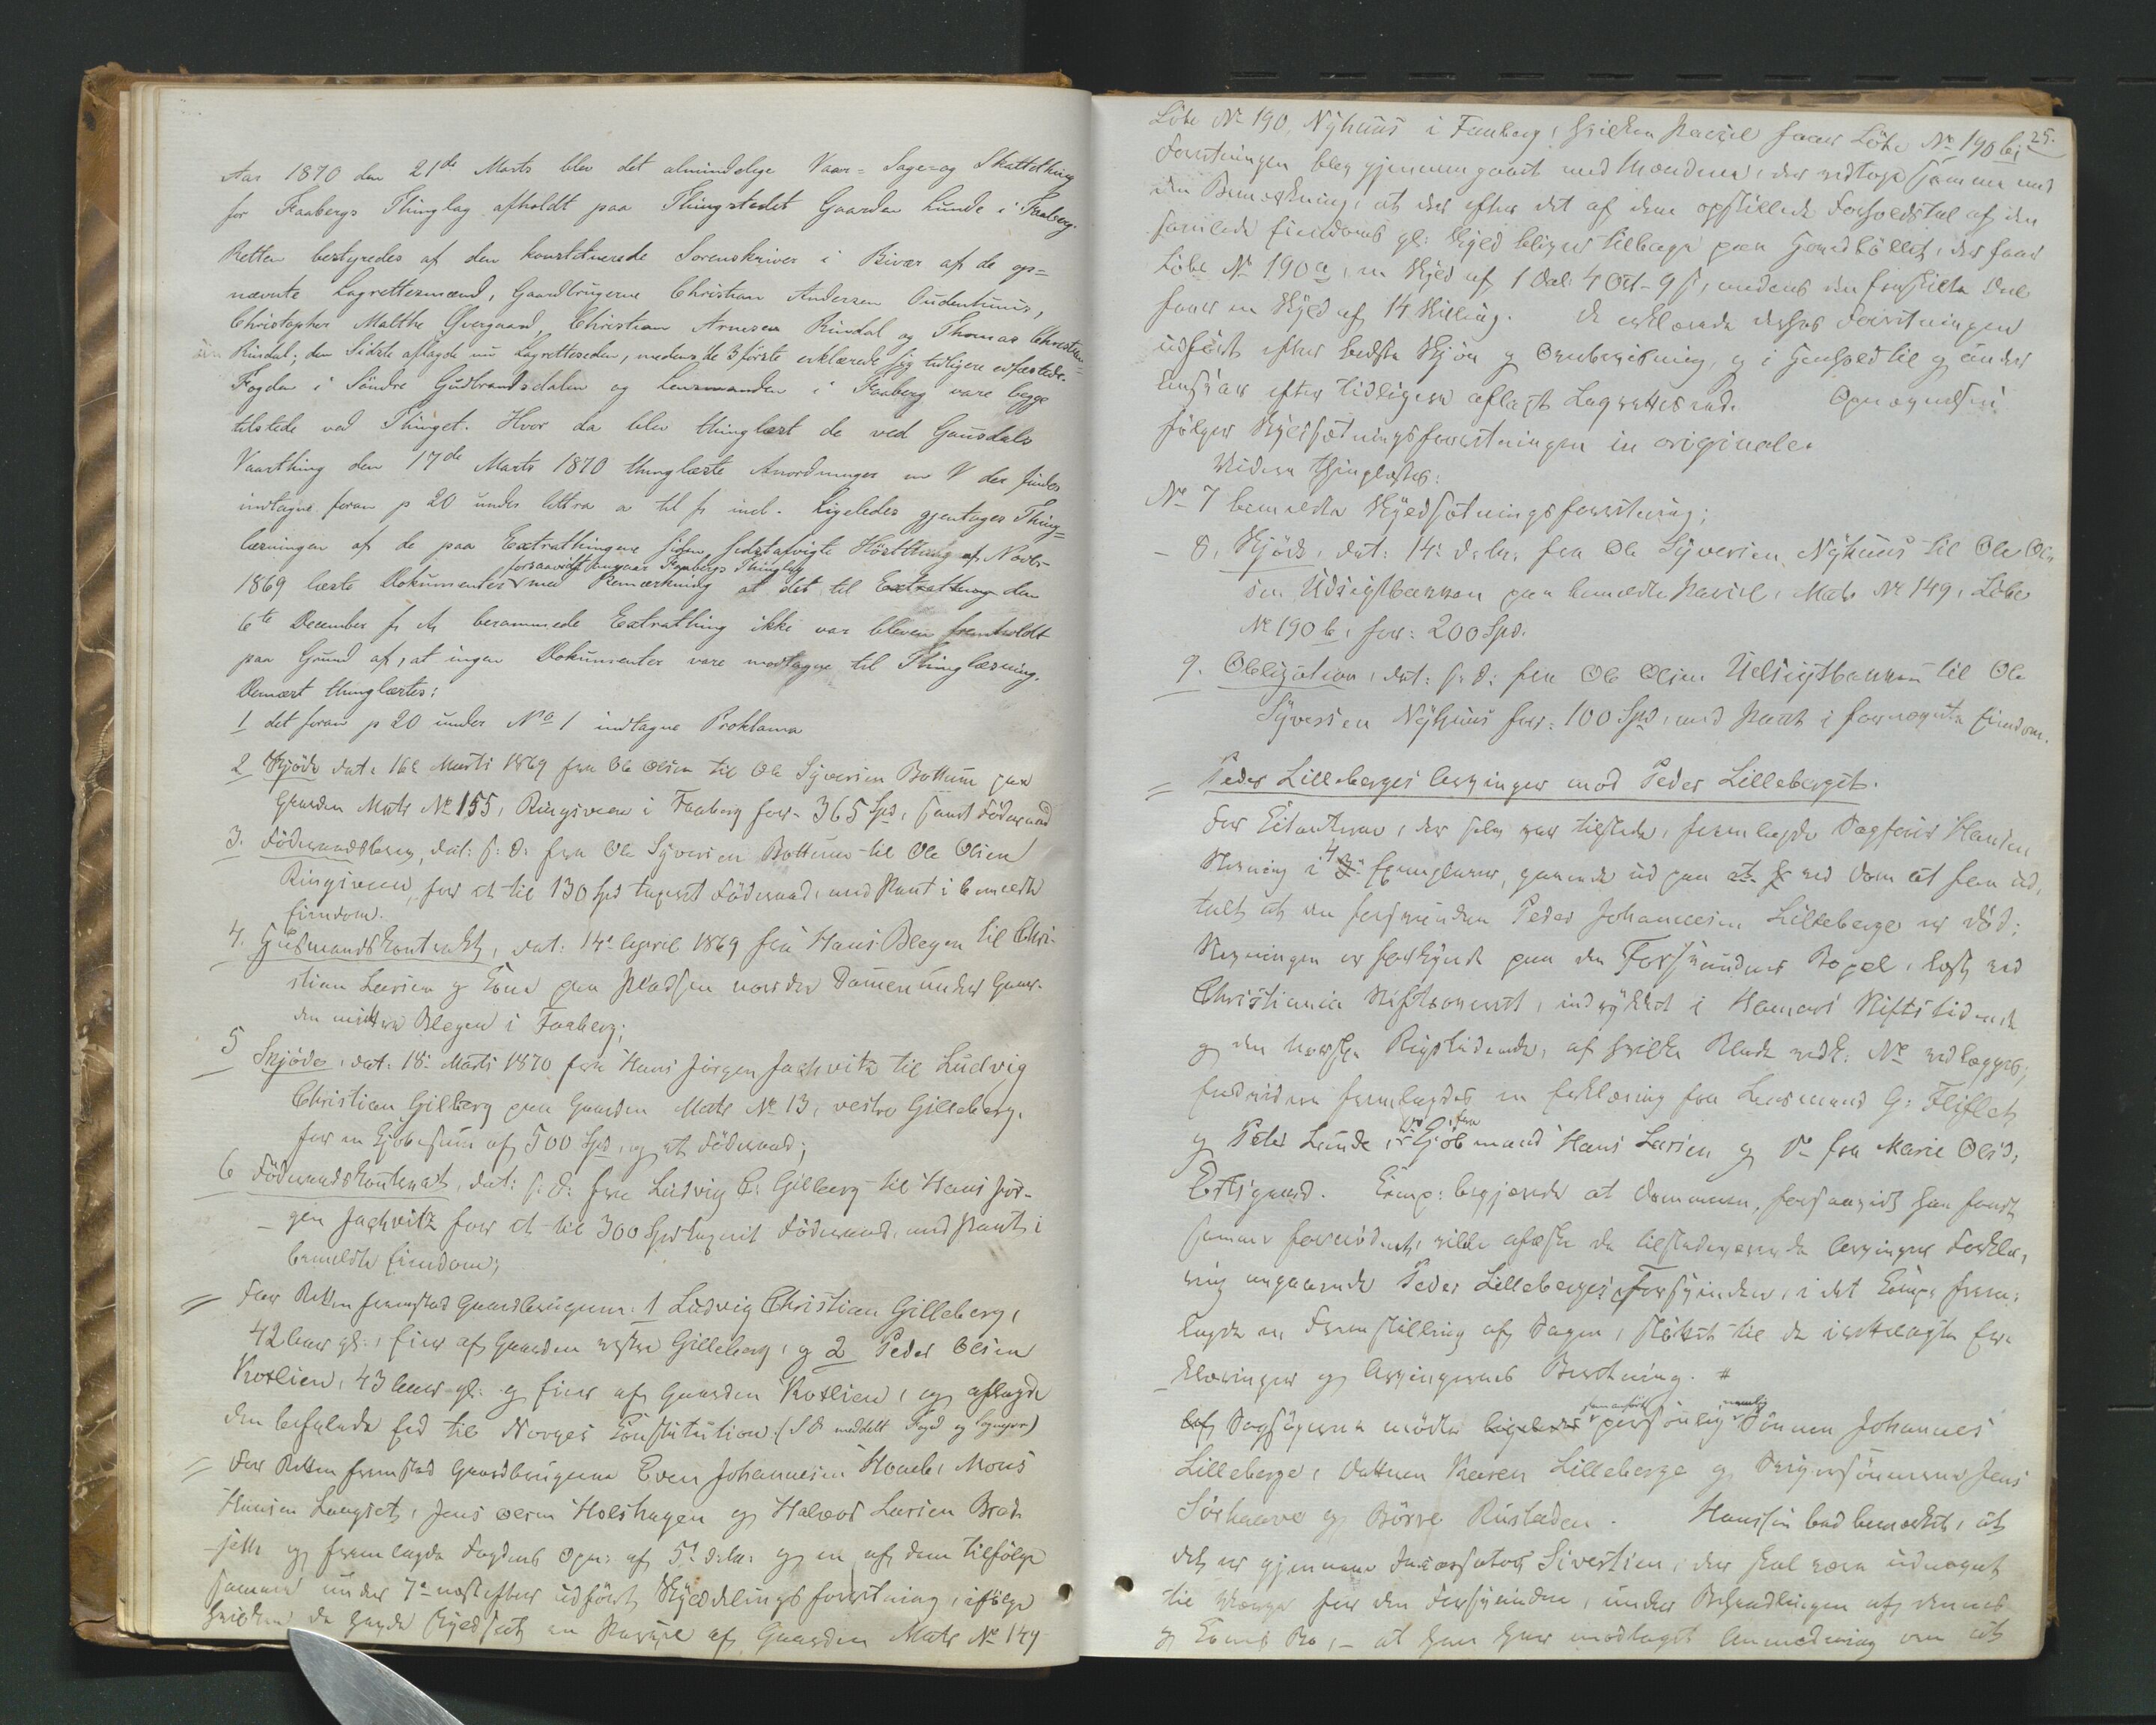 Aar 1870 den 21de Marts blev det almindelige Vaar- Sage- og Skattething
for Faabergs Thinglag afholdt paa Thingstedet Gaarden Lunde i Faaberg.
Retten bestyredes af den konstituerede Sorenskriver i Bivær af de op-
nævnte Lagrettesmænd, Gaardbrugerne Christian Andersen Oudenhuus,
Christopher Malthe Øvergaard, Christian Arnesen Rindal og Thomas Christian-
sen Rindal; den Sidste aflagde nu Lagretteseden, medens de 3 første erklærede sig tidligere edfæstede.
Fogden i Søndre Gudbrandsdalen og Lensmanden i Faaberg vare begge
tilstede ved Thinget. Hvor da blev thinglæst de ved Gausdals
Vaarthing den 17de Marts 1870 thinglæste Anordninger m V der findes
indtagne foran p 20 under littra a til f incl. Ligeledes gjentages Thing-
læsningen af de paa Extrathingene siden sidstafvigte Høstthing af Novbr
forsaavidt angaar Faabergs Thinglag
1869 læste Dokumenter med Bemærkning at det til Extrathing den
6te December f. A. berammede Extrathing ikke var bleven fremholdt
paa Grund af, at ingen Dokumenter vare modtagne til Thinglæsning.
Dernæst thinglæstes:
1 det foran p 20 under No 1 indtagne Proklama
2 Skjøde dat: 16de Marts 1869 fra Ole Olsen til Ole Syversen Bottum paa
Gaarden Matr No 155, Ringsveen i Faaberg for 365 Spd, samt Föderaad
3. Föderaadsbrev, dat: s: D: fra Ole Syversen Bottum til Ole Olsen
Ringsveen, for et til 130 Spd taxeret Föderaad, med Pant i bemeldte
Eiendom.
4. Huusmandskontrakt, dat: 14 April 1869 fra Hans Blegen til Chri-
stian Larsen og Kone paa Pladsen nordre Dammen under Gaar-
den nidtre Blegen i Faaberg;
5 Skjøde, dat: 18 Marts 1870 fra Hans Jörgen Jachvitz til Ludvig
Christian Gilberg paa Gaarden Matr No 13, vestre Gilleberg,
for en Kjöbesum af 500 Spd, og et Föderaad;
6 Föderaadskontrakt, dat: s: D: fra Ludvig C: Gilberg til Hans Jör-
gen Jachvitz for et til 300 Spd taxeret Föderaad, med Pant i
bemeldte Eiendom;
= For Retten fremstod Gaardbrugerne: 1 Ludvig Christian Gilleberg,
42 Aar gl:, Eier af Gaarden vestre Gilleberg, og 2 Peder Olsen
Roxlien, 43 Aar gl: og Eier af Gaarden Roxlien, og aflagde
den befalede Ed til Norges Konstitution. (S D meddelt Foged og Sogneprest)
= For Retten fremstod Gaardbrugerne Even Johannesen Hovde, Mons
Hansen Langset, Jens Holshagen og Halvor Larsen Brod-
og fremlagde Fogdens Opn: af 5 d: M: og en af dem tilfölge
samme under 7 næstefter udfört Skylddelingsforretning, ifölge
hvilken de havde skyldsat en Parcel af Gaarden Matr No 149
25.
Löbe No 190, Nyhuus i Faaberg, hvilken Parcel faaer Löbe No 190 b;
Forretningen blev gjennemgaaet med Mændene, der vedtoge samme med
den Bemærkning, at der efter det af dem opstillede Forholdstal af den
samlede Eiendoms gl: Skyld bliver tilbage paa Hovedböllet, der faar
Löbe No 190 a, en Skyld af 1 Dal: 4 Ort - 9 s, medens den fraskilte Del
faaer en Skyld af 14 Skilling. De erklærede derhos Forretningen
udfört efter bedste Skjön og Overbeviisning, og i Henhold til og under
Ansvar efter tidligere aflagt Lagrettes ed. Opnævnelsen
fölger Skyldsætningsforretningen in originale.
Videre thinglæstes:
No 7 bemeldte Skyldsætningsforretning;
- 8, Skjöde, dat: 14 d: M: fra Ole Syversen Nyhuus til Ole Ol-
sen Udsigtbakken paa bemeldte Parcel, Matr No 149, Löbe
No 190 b, for: 200 Spd.
9. Obligation, dat: s: D: fra Ole Olsen Udsigtbakken til Ole
Syversen Nyhuus for: 100 Spd, med Pant i fornævnte Eiendom.
= Peder Lilleberges Arvinger mod Peder Lilleberget.
For Citanterne, der selv var tilstede, fremlagde Sagförer Hansen
Stevning i 4 Exemplarer, gaaende ud paa ved Dom at faa ud-
talt at den forsvundne Peder Johannesen Lilleberge er död;
Stevningen er forkyndt paa den Forsvundnes Bopæl, læst ved
Christiania Stiftsoverret, indrykket i Hamars Stiftstidende
og den norske Rigstidende, af hvilke Blade vedk: No vedlægges;
endvidere fremlagdes en Erklæring fra Lensmand G: Fliflet
og Peter Lunde, fra Kjöbmand Hans Larsen og Do fra Marie Olsd,
Citsgaard. Komp: begjærede at Dommeren, forsaavidt han fandt
samme fornödent, vilde afæske de tilstedeværende Arvinger Forkla-
ring angaaende Peder Lilleberges Forsvinden, i det Komp: frem-
lagde en Fremstilling af Sagen, stöttet til de indtagne Er-
klæringer og Arvingernes Beretning. #
Af Sagsögerne mödte ligeledes personlig nemlig Sönnen Johannes
Lilleberge, Datteren Karen Lilleberge og Svigersönnerne Jens
Sörhaave og Börre Rustaden. Hanssen bad bemærket, at
det er gjennem Inkassator Sivertsen, der skal være udnævnt
til Værge for den Forsvundne, under Behandlingen af dennes
og Kones Bo, - at han har modtaget Anmodning om at